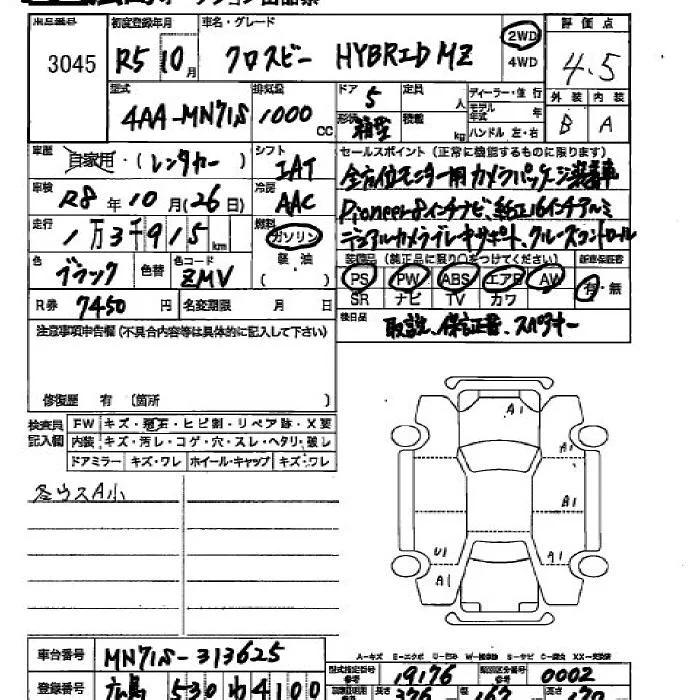 出品番号 初度登録年月 車名・グレード 評価点
3045 R5 10月 クロスビー HYBRID MZ 2WD 4WD 4.5
型式 排気量 ドア 定員 ディーラー・並行 外装 内装
4AA-MN71S 1000 CC 5 人 モデル年式 年 B A
形状 箱型 積載 kg ハンドル 左・右
車歴 自家用・(レンタカー) シフト IAT セールスポイント (正常に機能するものに限ります)
車検 R8年10月(26日) 冷房 AAC 全方位モニター用カメラパッケージ装着車
Pioneer8インチナビ、純正16インチアルミ
走行 1万3千915km 燃料 ガソリン デュアルカメラブレーキサポート、クルーズコントロール
軽油 装備品 (純正品に限り○をつけてください) 新車保証書
色 ブラック 色替 色コード ZMV ( ) PS PW ABS エアB AW 有・無
SR ナビ TV カワ
R券 7450円 名変期限 月 日 後日品 取説、保証書、スペアキー
注意事項申告欄 (不具合内容等は具体的に記入して下さい)
修復歴 有 (箇所
検査員記入欄 FW キズ・飛石・ヒビ割・リペア跡・X要
内装 キズ・汚レ・コゲ・穴・スレ・ヘタリ・破レ
ドアミラー キズ・ワレ ホイール・キャップ キズ・ワレ
各ウスA小
A1
A1
A1
U1 A1
A1
A-キズ E-エクボ U-凹み W-補修跡 S-サビ C-腐食 XX-交換済
車台番号 MN71S-313625 型式指定番号 参考 19176 類別区分番号 参考 0002
登録番号 広島 530 わ 4100 長さ 376 幅 167 高さ 170